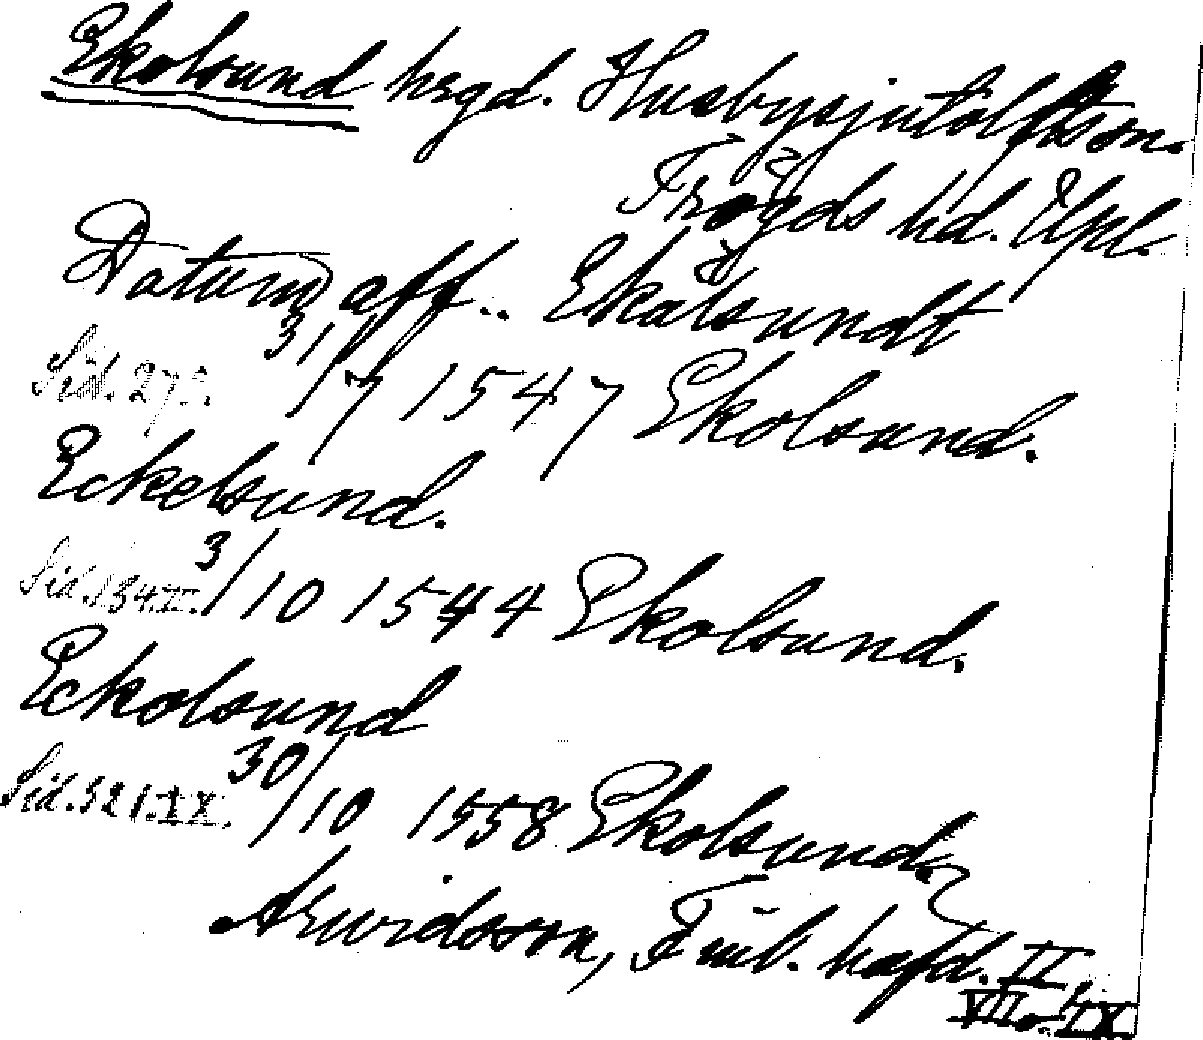 Ekolsund hrgd. Husbysjutolftssn.
Trögds hd. Upl.
Datum aff .. Ekålsundt
31/7 1547 Ekolsund.
Eckelsund.
Sid. 134.II. 3/10 1544 Ekolsund.
Eckolsund
Sid. 321.IX. 30/10 1558 Ekolsund.
Arwidsson, Finl. hafd. II,
VII o. IX